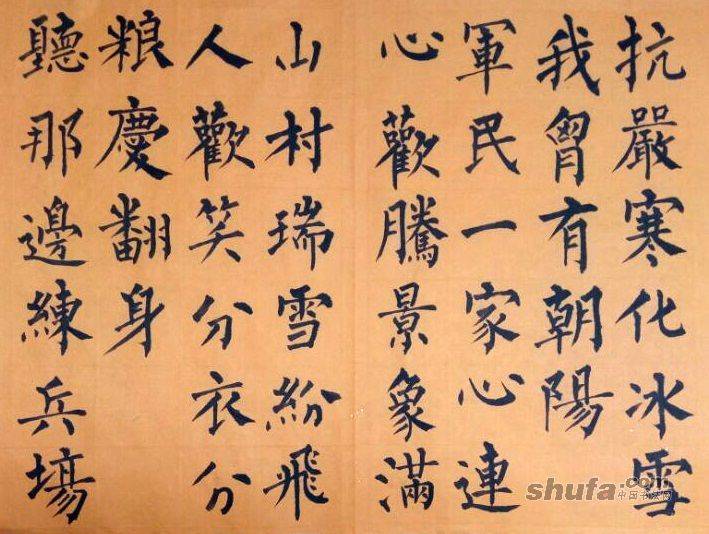 抗嚴寒化冰雪
我胷有朝陽
軍民一家心連
心歡騰景象滿
山村瑞雪紛飛
人歡笑分衣分
粮慶翻身
聽那邊練兵場
shufa.com
中国书法网